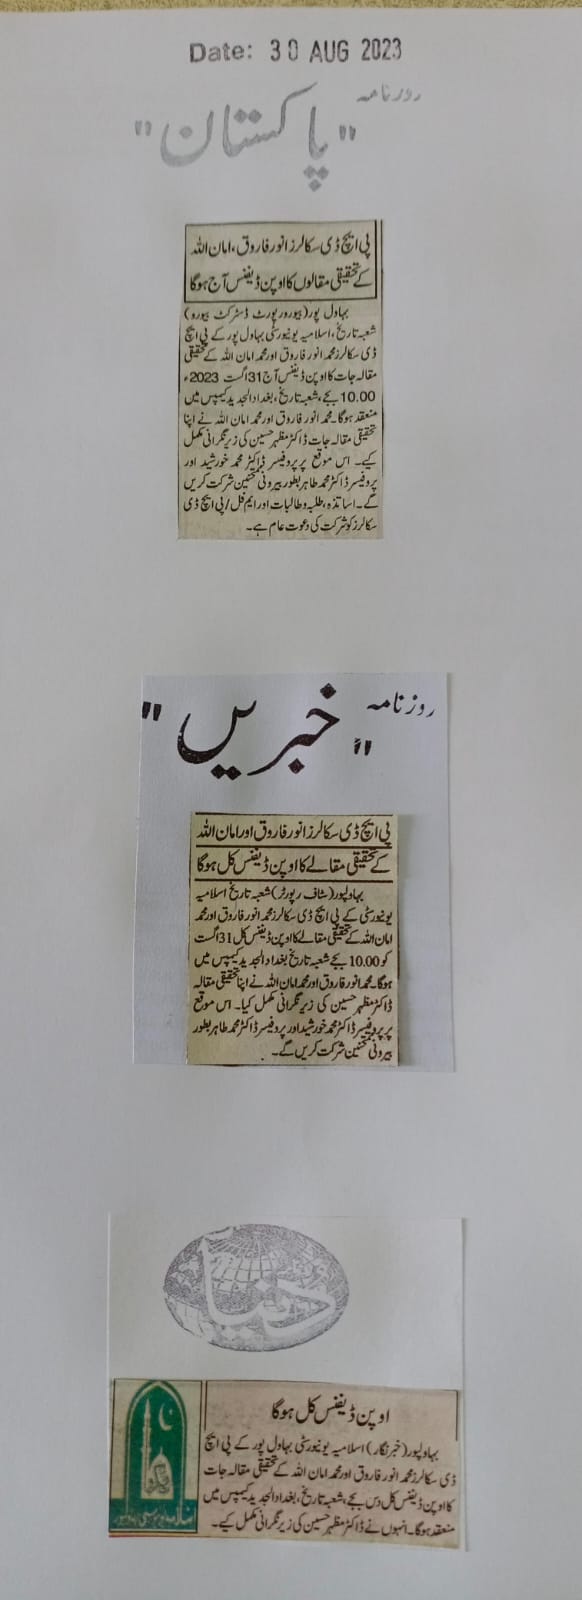 Date: 30 AUG 2023
روزنامہ
"پاکستان"
پی ایچ ڈی سکالرز انور فاروق، امان اللہ
کے تحقیقی مقالوں کا اوپن ڈیفنس آج ہوگا
بہاول پور (بیورو رپورٹ ڈسٹرکٹ بیورو)
شعبہ تاریخ، اسلامیہ یونیورسٹی بہاول پور کے پی ایچ
ڈی سکالرز محمد انور فاروق اور محمد امان اللہ کے تحقیقی
مقالہ جات کا اوپن ڈیفنس آج 31 اگست 2023ء
10.00 بجے، شعبہ تاریخ، بغداد الجدید کیمپس میں
منعقد ہوگا۔ محمد انور فاروق اور محمد امان اللہ نے اپنا
تحقیقی مقالہ جات ڈاکٹر مظہر حسین کی زیر نگرانی مکمل
کیے۔ اس موقع پر پروفیسر ڈاکٹر محمد خورشید اور
پروفیسر ڈاکٹر محمد طاہر بطور بیرونی ممتحنین شرکت کریں
گے۔ اساتذہ، طلبہ و طالبات اور ایم فل/پی ایچ ڈی
سکالرز کو شرکت کی دعوت عام ہے۔
روزنامہ
"خبریں"
پی ایچ ڈی سکالرز انور فاروق اور امان اللہ
کے تحقیقی مقالے کا اوپن ڈیفنس کل ہوگا
بہاولپور (سٹاف رپورٹر) شعبہ تاریخ اسلامیہ
یونیورسٹی کے پی ایچ ڈی سکالرز محمد انور فاروق اور محمد
امان اللہ کے تحقیقی مقالے کا اوپن ڈیفنس کل 31 اگست
کو 10.00 بجے شعبہ تاریخ بغداد الجدید کیمپس میں
ہوگا۔ محمد انور فاروق اور محمد امان اللہ نے اپنا تحقیقی مقالہ
ڈاکٹر مظہر حسین کی زیر نگرانی مکمل کیا۔ اس موقع
پر پروفیسر ڈاکٹر محمد خورشید اور پروفیسر ڈاکٹر محمد طاہر بطور
بیرونی ممتحنین شرکت کریں گے۔
دنیا
اوپن ڈیفنس کل ہوگا
بہاولپور (خبر نگار) اسلامیہ یونیورسٹی بہاول پور کے پی ایچ
ڈی سکالرز محمد انور فاروق اور محمد امان اللہ کے تحقیقی مقالہ جات
کا اوپن ڈیفنس کل دس بجے، شعبہ تاریخ، بغداد الجدید کیمپس میں
منعقد ہوگا۔ انہوں نے ڈاکٹر مظہر حسین کی زیر نگرانی مکمل کیے۔
اسلامیہ یونیورسٹی بہاولپور